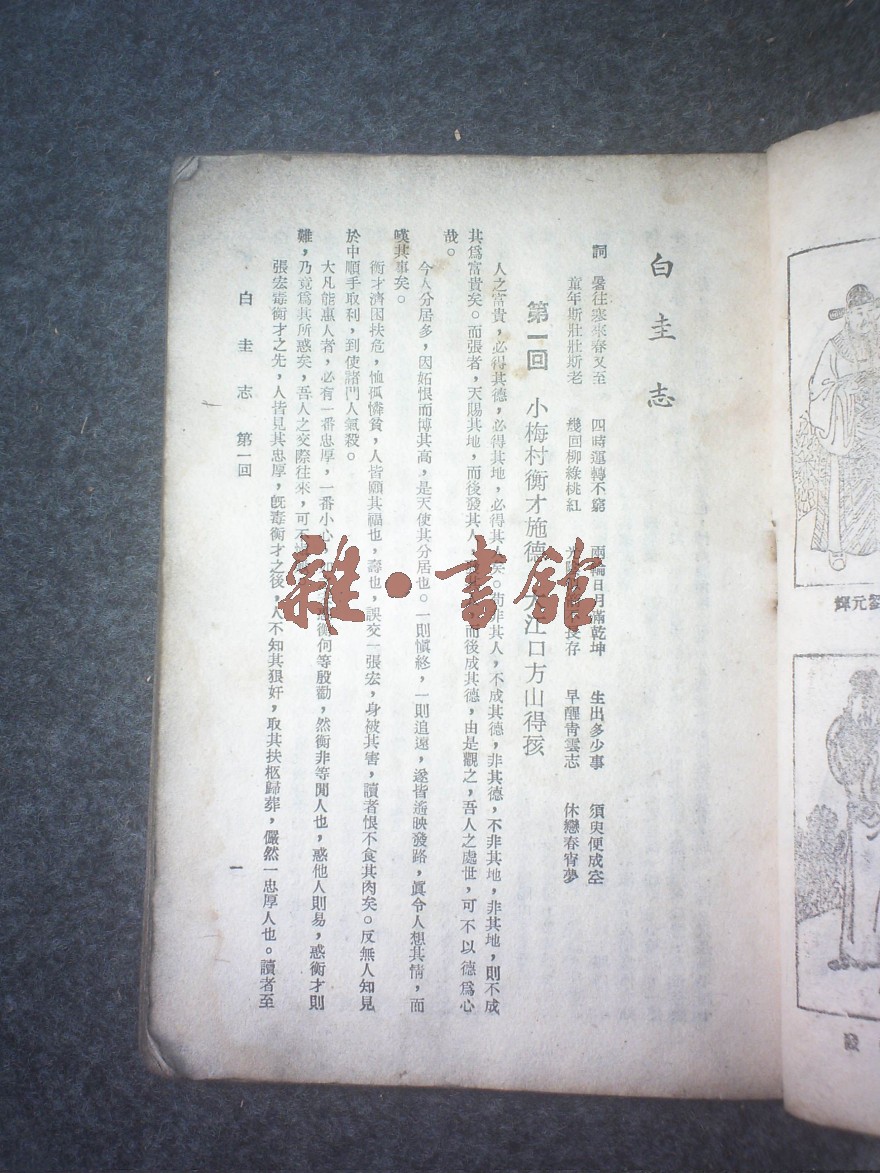 白圭志
詞 暑往寒來春又至 四時運轉不窮 兩輪日月滿乾坤 生出多少事 須臾便成空
童年斯壯壯斯老 幾回柳綠桃紅 光 長存 早醒靑雲志 休戀春宵夢
第一回 小梅村衡才施德 大江口方山得孩
人之富貴,必得其德,必得其地,必得其人矣。苟非其人,不成其德,非其德,不非其地,非其地,則不成
其爲富貴矣。而張者,天賜其地,而後發其人, 而後成其德,由是觀之,吾人之處世,可不以德爲心
哉。
今人分居多,因妬恨而博其高,是天使其分居也。一則愼終,一則追遠,遂皆遙映發路,眞令人想其情,而
嘆其事矣。
衡才濟困扶危,恤孤憐貧,人皆願其福也,壽也,誤交一張宏,身被其害,讀者恨不食其肉矣。反無人知見
於中順手取利,到使諸門人氣殺。
大凡能惠人者,必有一番忠厚,一番小心, 衡何等殷勸,然衡非等閒人也,惑他人則易,惑衡才則
難,乃竟爲其所惑矣,吾人之交際往來,可不
張宏毒衡才之先,人皆見其忠厚,旣毒衡才之後,人不知其狠奸,取其扶柩歸葬,儼然一忠厚人也。讀者至
白圭志 第一回
一
劉元輝
雜·書館